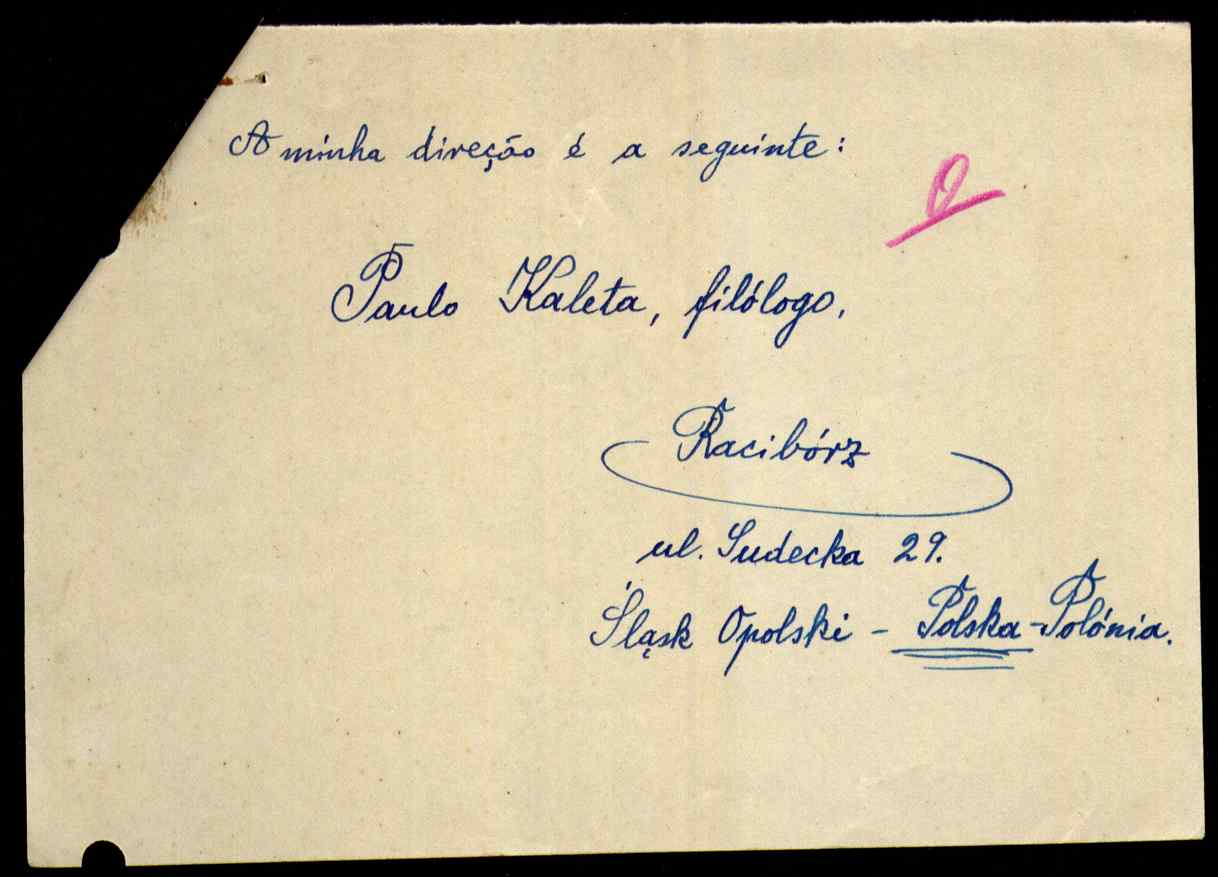 A minha direção é a seguinte:
Paulo Kaleta, filólogo.
Racibórz
ul. Sudecka 29.
Śląsk Opolski - Polska - Polónia.